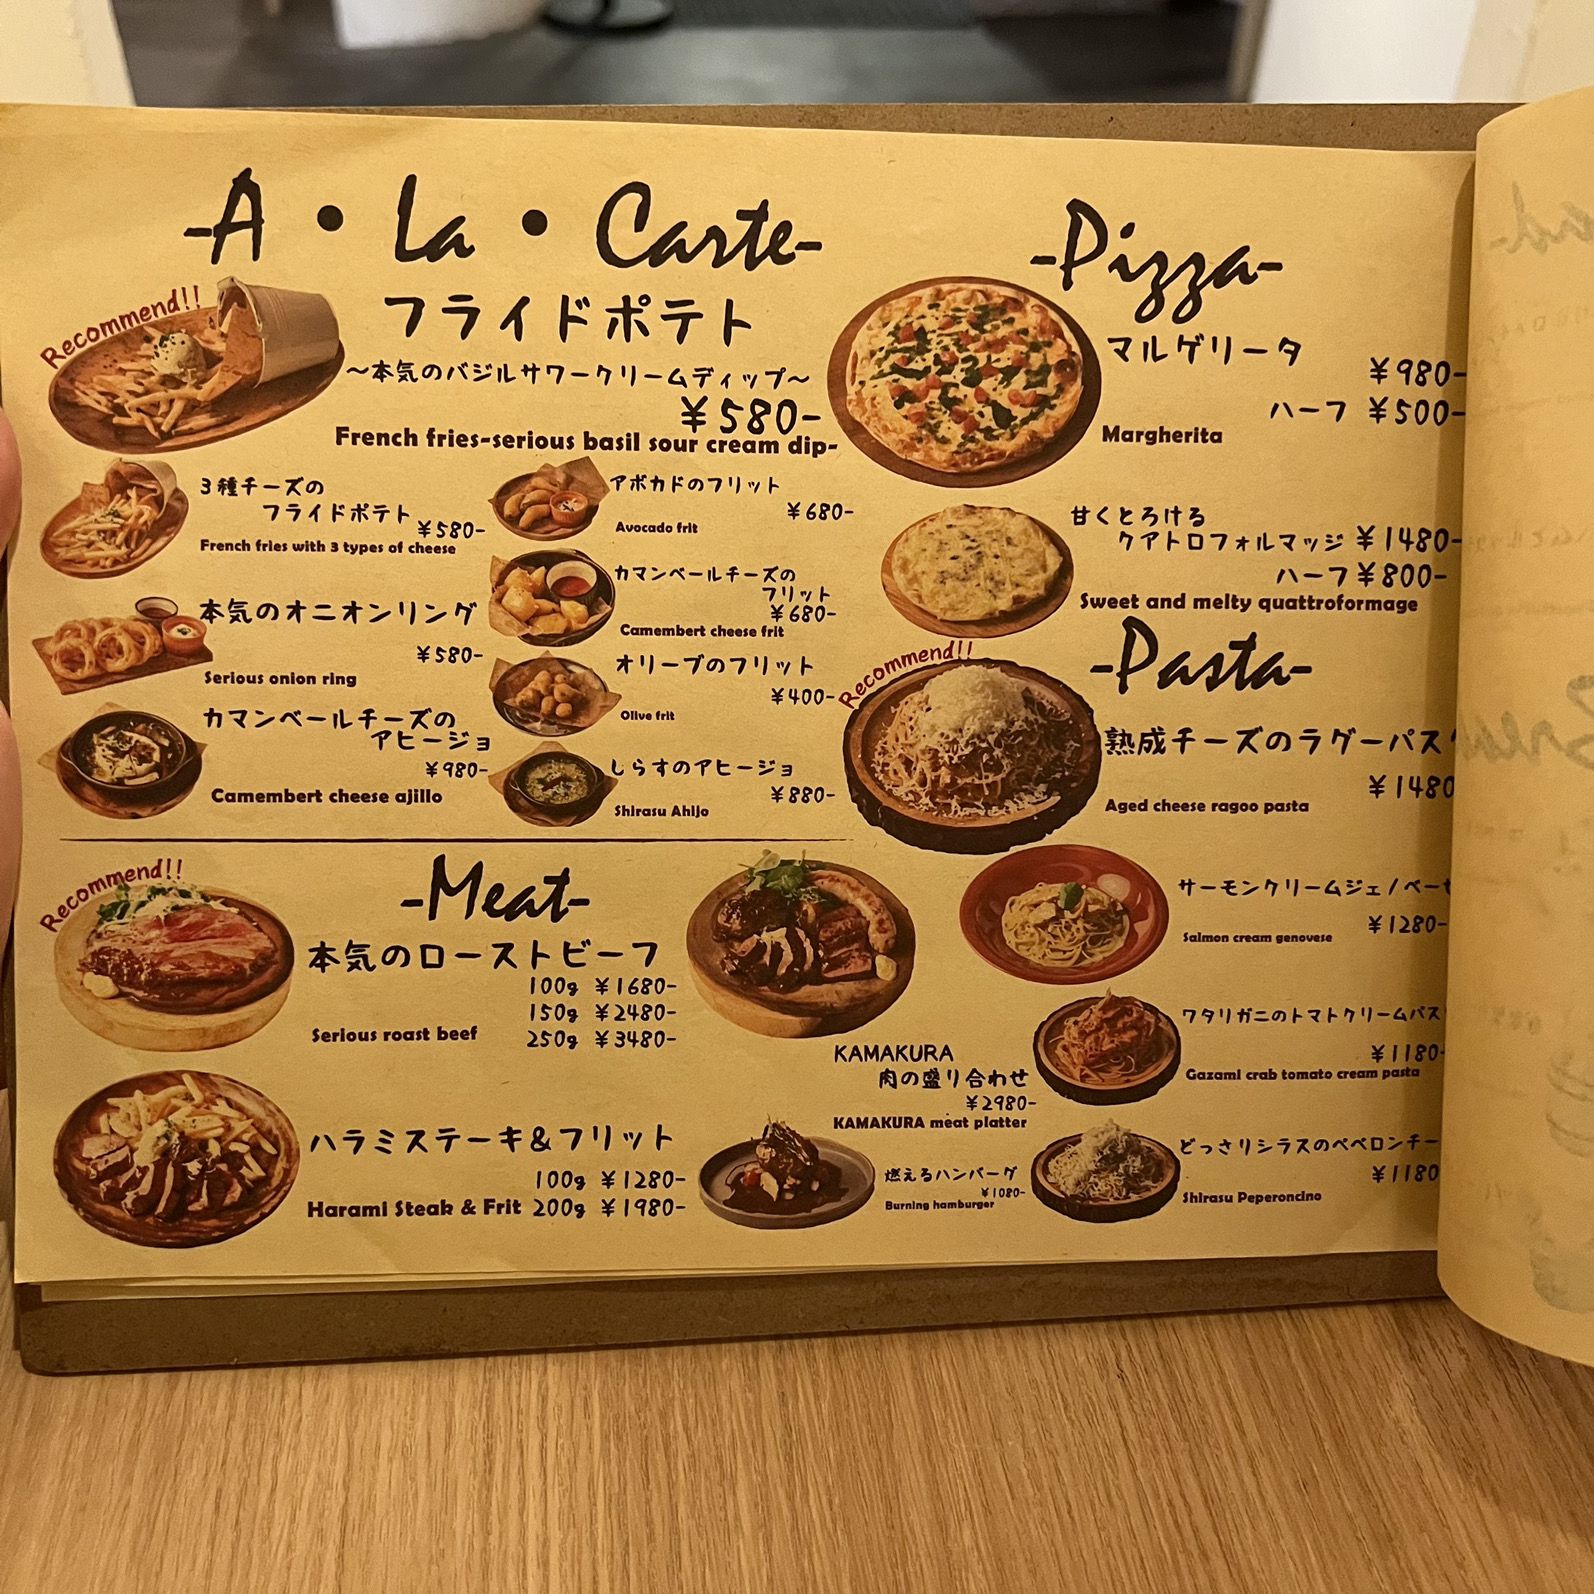 -A・La・Carte-
Recommend!!
フライドポテト
〜本気のバジルサワークリームディップ〜
¥580-
French fries-serious basil sour cream dip-
3種チーズの
フライドポテト
¥580-
French fries with 3 types of cheese
本気のオニオンリング
¥580-
Serious onion ring
カマンベールチーズの
アヒージョ
¥980-
Camembert cheese ajillo
アボカドのフリット
¥680-
Avocado frit
カマンベールチーズの
フリット
¥680-
Camembert cheese frit
オリーブのフリット
¥400-
Olive frit
しらすのアヒージョ
¥880-
Shirasu Ahijo
-Meat-
Recommend!!
本気のローストビーフ
100g ¥1680-
150g ¥2480-
250g ¥3480-
Serious roast beef
ハラミステーキ&フリット
100g ¥1280-
Harami Steak & Frit 200g ¥1980-
KAMAKURA
肉の盛り合わせ
¥2980-
KAMAKURA meat platter
燃えるハンバーグ
¥1080-
Burning hamburger
-Pizza-
マルゲリータ
¥980-
ハーフ ¥500-
Margherita
甘くとろける
クアトロフォルマッジ ¥1480-
ハーフ¥800-
Sweet and melty quattroformage
-Pasta-
Recommend!!
熟成チーズのラグーパス
¥1480
Aged cheese ragoo pasta
サーモンクリームジェノベーゼ
¥1280-
Salmon cream genovese
ワタリガニのトマトクリームパス
¥1180-
Gazami crab tomato cream pasta
どっさりシラスのペペロンチー
¥1180
Shirasu Peperoncino